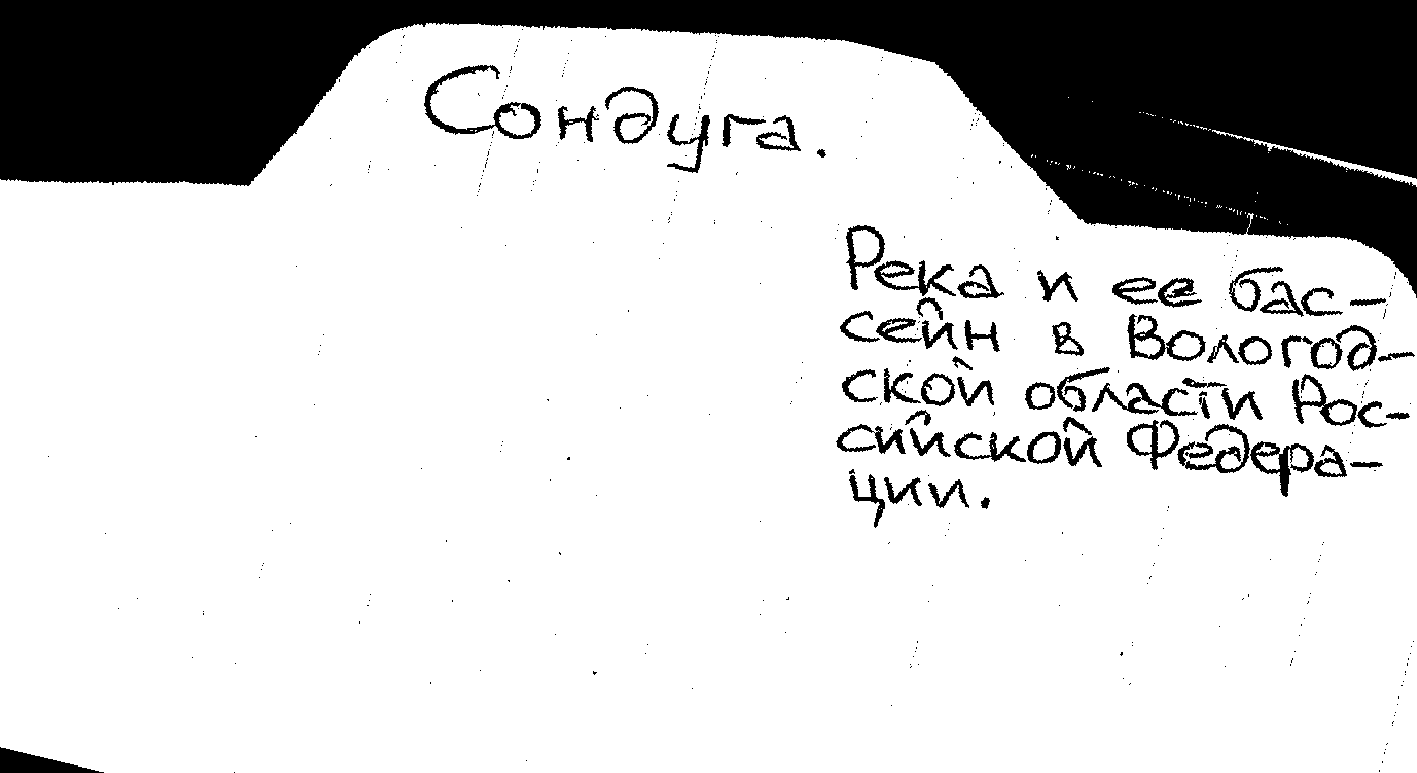 Сондуга.
Река и ее бас-
сейн в Вологод-
ской области Рос-
сийской Федера-
ции.